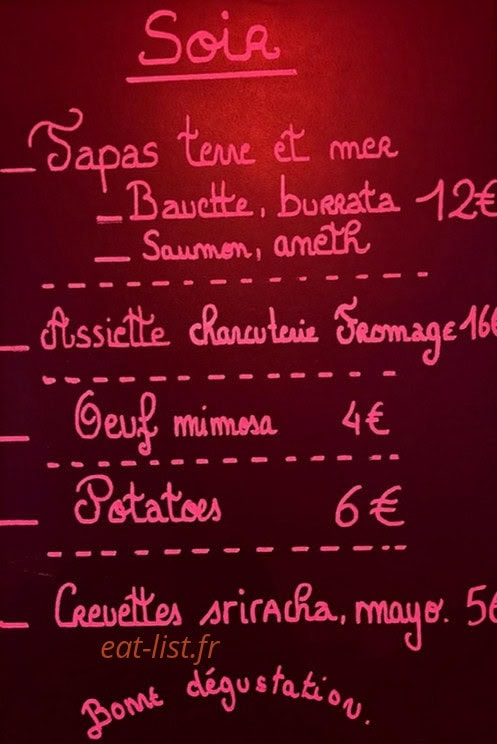 Soir
Tapas terre et mer
Bavette, burrata 12€
Saumon, aneth
Assiette charcuterie Fromage 16€
Oeuf mimosa 4€
Potatoes 6€
Crevettes sriracha, mayo. 5€
eat-list.fr
Bonne dégustation.